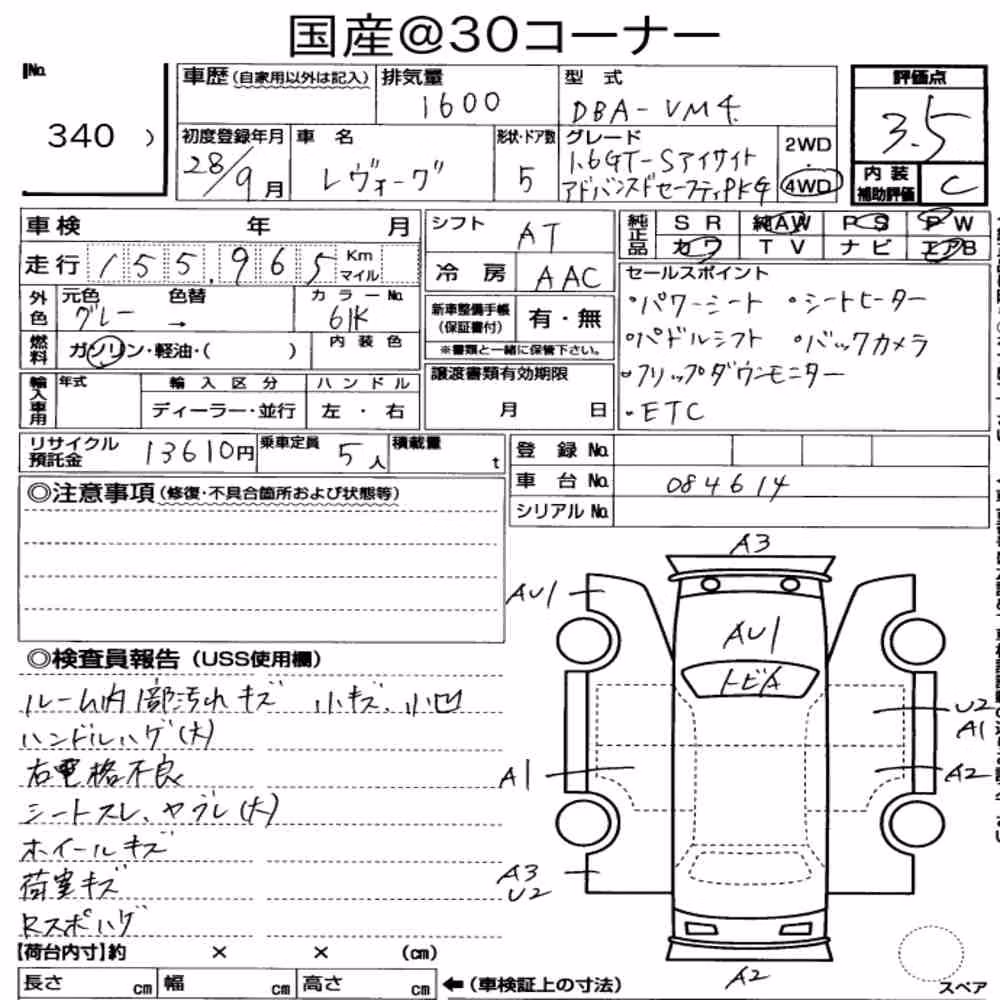 国産@30コーナー
No. 340 )
車歴(自家用以外は記入)
排気量 1600
型式 DBA-VM4
評価点 3.5
内装補助評価 C
初度登録年月 28/9月
車名 レヴォーグ
形状・ドア数 5
グレード 1.6GT-Sアイサイト
アドバンスドセーフティPK4
2WD・4WD
車検 年 月
走行 155,965 Km マイル
シフト AT
冷房 AAC
純正品 SR 純AW PS PW
カワ TV ナビ エアB
外色 元色 グレー 色替 → カラーNo. 61K
燃料 ガソリン・軽油・( )
内装色
新車整備手帳(保証書付) 有・無
※書類と一緒に保管下さい。
セールスポイント
・パワーシート ・シートヒーター
・パドルシフト ・バックカメラ
・フリップダウンモニター
・ETC
輸入車用 年式 輸入区分 ハンドル
ディーラー・並行 左・右
譲渡書類有効期限
月 日
リサイクル預託金 13610円
乗車定員 5人
積載量 t
登録No.
車台No. 084614
シリアルNo.
◎注意事項(修復・不具合箇所および状態等)
◎検査員報告(USS使用欄)
ルーム内1部汚れキズ 小キズ、小凹
ハンドルハゲ(大)
右電格不良
シートスレ、ヤブレ(大)
ホイールキズ
荷室キズ
Rスポハゲ
A3
AU1
AU1
トビA
U2
A1
A1
A2
A3
U2
A2
【荷台内寸】約 × × (cm)
長さ cm 幅 cm 高さ cm ←(車検証上の寸法)
スペア